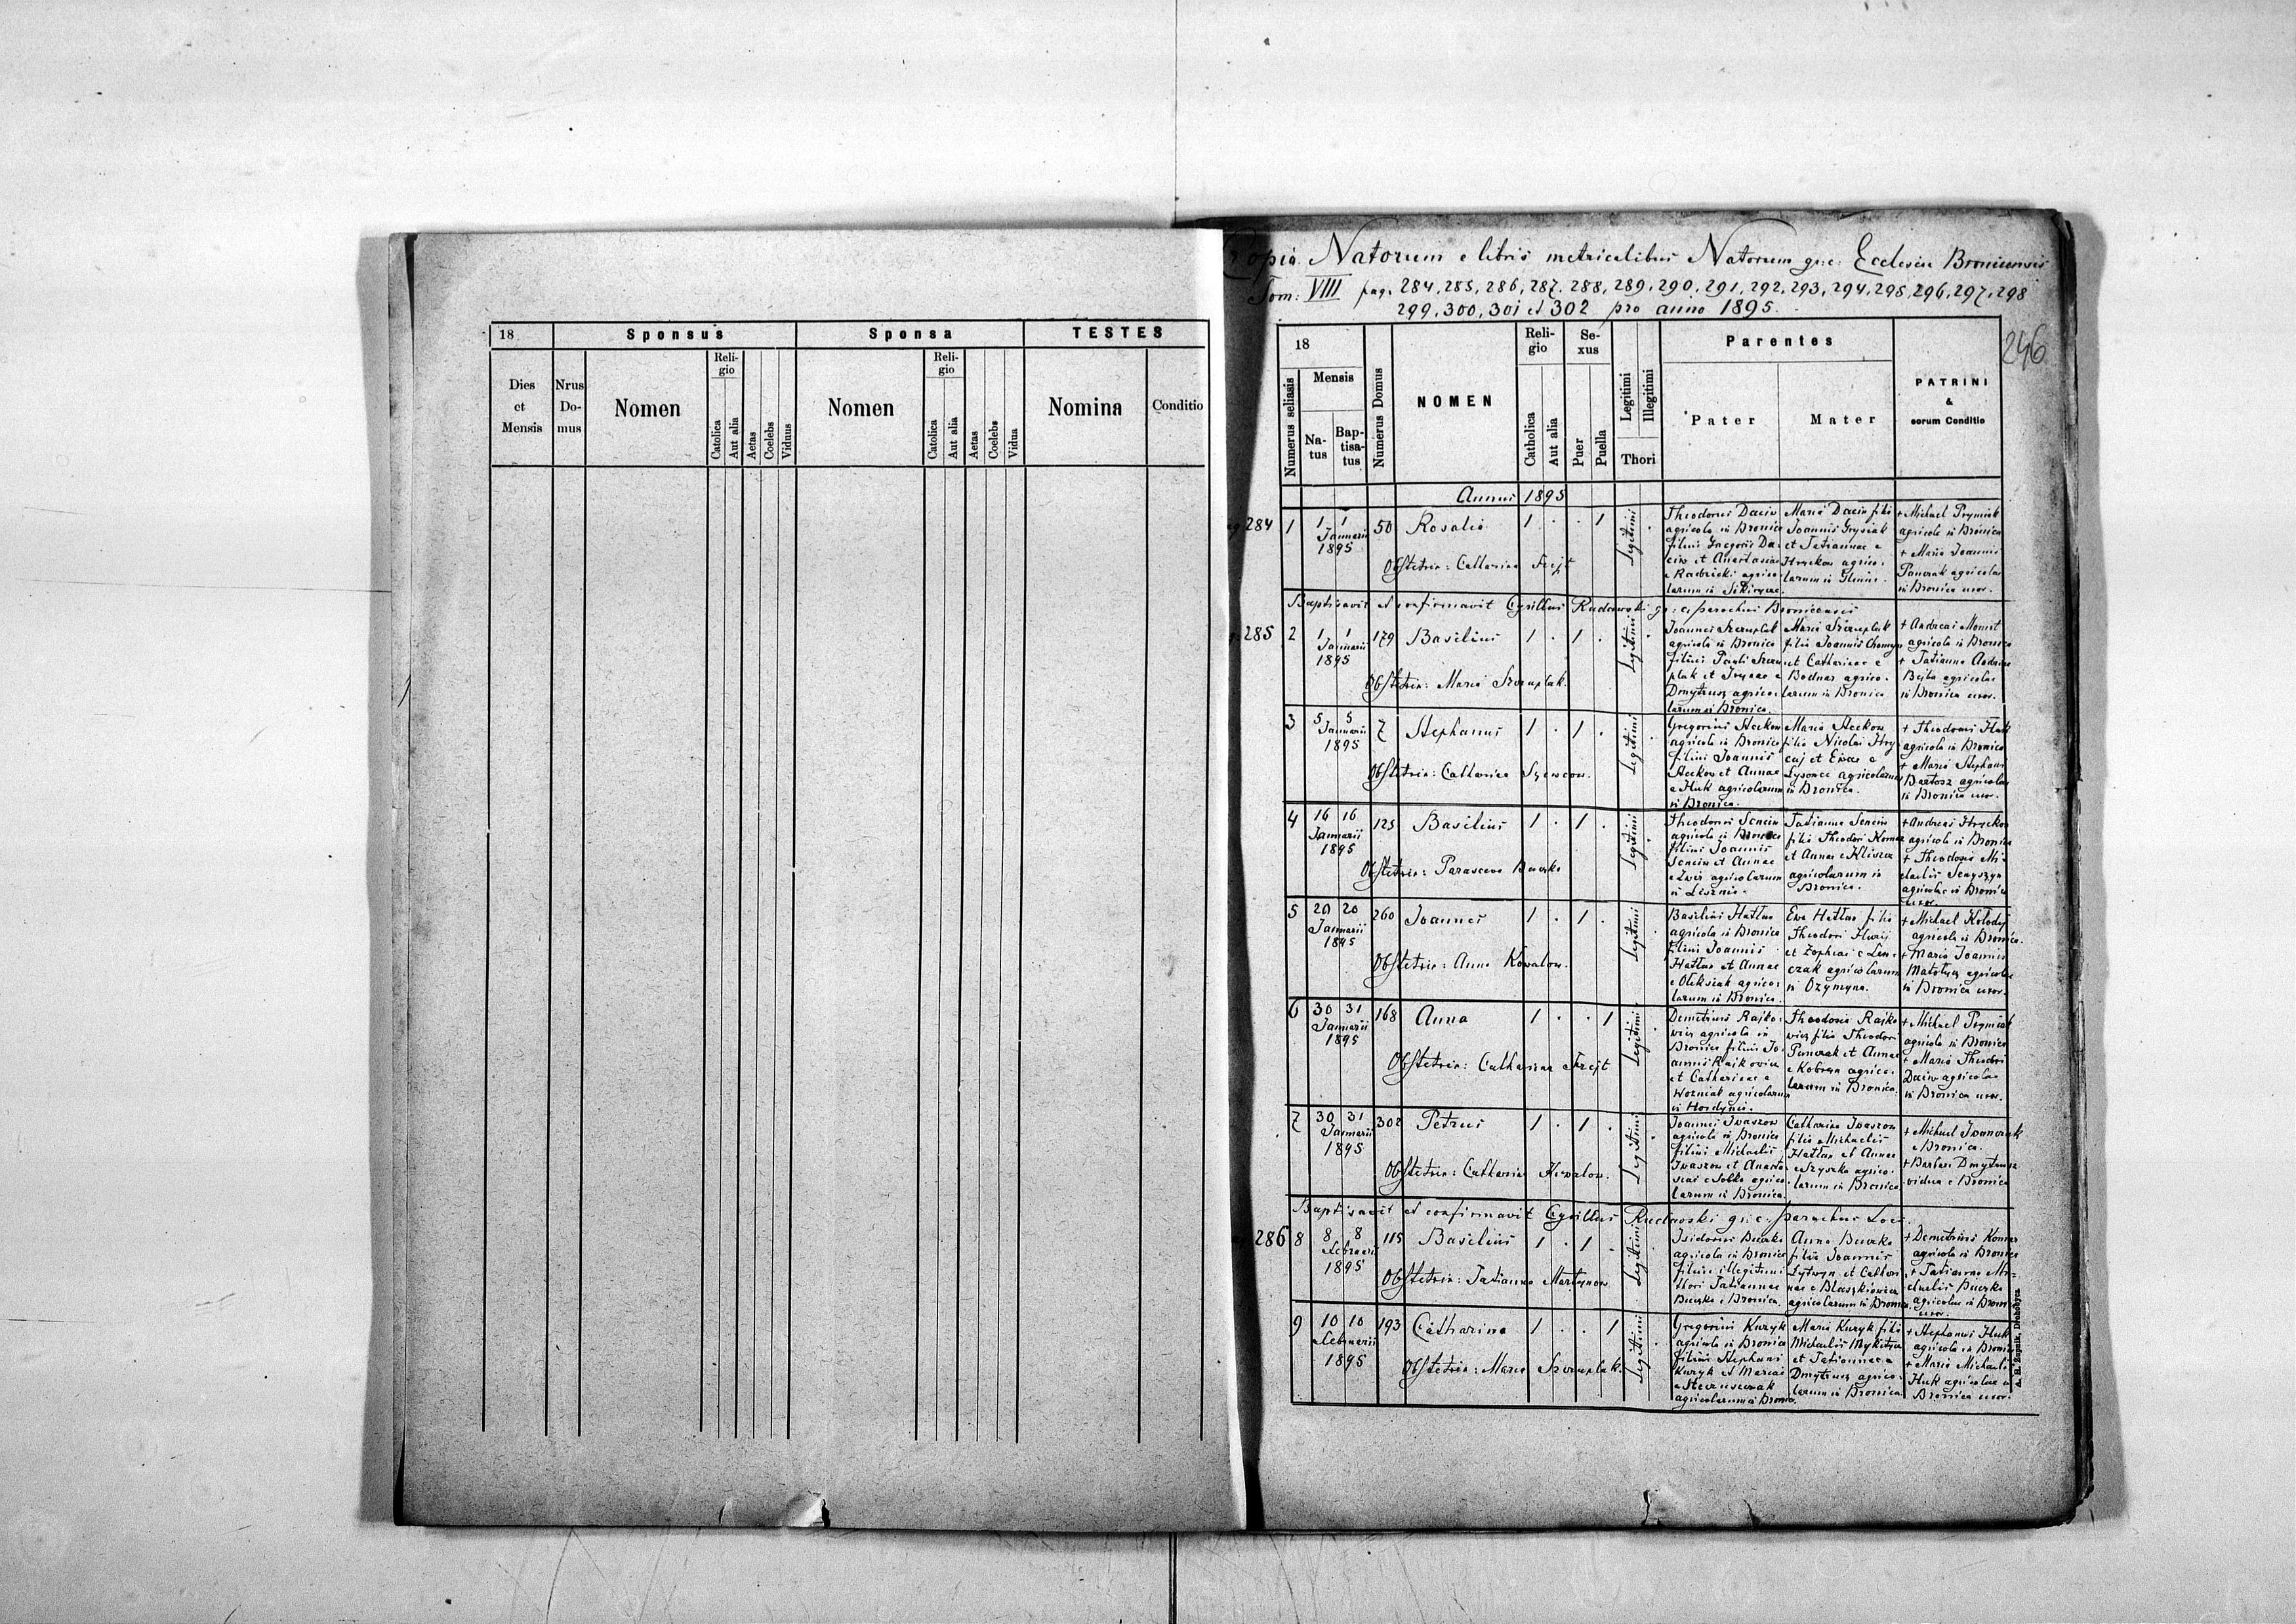 18
Sponsus
Sponsa
TESTES
Dies et Mensis
Nrus Domus
Nomen
Religio
Catolica
Aut alia
Aetas
Coelebs
Viduus
Nomen
Religio
Catolica
Aut alia
Aetas
Coelebs
Vidua
Nomina
Conditio
Copia Natorum e libris metricalibus Natorum gr: c: Ecclesiae Bronicensis
Tom: VIII pag. 284, 285, 286, 287, 288, 289, 290, 291, 292, 293, 294, 295, 296, 297, 298
299, 300, 301 et 302 pro anno 1895.
246
18
Numerus seliasis
Mensis
Natus
Baptisatus
Numerus Domus
NOMEN
Religio
Catholica
Aut alia
Sexus
Puer
Puella
Legitimi
Illegitimi
Thori
Parentes
Pater
Mater
PATRINI
&
eorum Conditio
Annus 1895
284 1 1 1 50 Rosalia 1 . . 1 Legitimi
Januarii
1895
Obstetrix: Catharina
Theodorus Daciw
agricola in Bronica
filius Gregorii Da-
ciw et Anastasiae
e Radzicki agrico-
larum in
Maria Daciw filia
Joannis Hrysiak
et Tatiannae e
Hryckow agrico-
larum in
+ Michael Prymiak
agricola in Bronica
+ Maria Joannis
Panczak agricolae
in Bronica uxor.
Baptisavit et confirmavit Cyrillus Rudawski gr: c. parochus Bronicensis
285 2 1 1 179 Basilius 1 . 1 . Legitimi
Januarii
1895
Obstetrix: Maria Szremplak.
Joannes Szremplak
agricola in Bronica
filius Pauli Szrem-
plak et Irenae e
Dmytrusz agrico-
larum in Bronica.
Maria Szremplak
filia Joannis
et Catharinae e
Bodnar agrico-
larum in Bronica
+ Andreas
agricola in Bronica
+ Tatianna Andreae
Bejla agricolae
in Bronica uxor.
3 5 5 7 Stephanus 1 . 1 . Legitimi
Januarii
1895
Obstetrix: Catharina Szewcow.
Gregorius Steckow
agricola in Bronica
filius Joannis
Steckow et Annae
e Huk agricolarum
in Bronica.
Maria Steckow
filia Nicolai Hry-
caj et Evae e
agricolarum
in Bronica.
+ Theodorus Huk
agricola in Bronica
+ Maria Stephani
Bartosz agricolae
in Bronica uxor.
4 16 16 125 Basilius 1 . 1 . Legitimi
Januarii
1895
Obstetrix: Parasceva Burko
Theodorus Senciw
agricola in Bronica
filius Joannis
Senciw et Annae
agricolarum
Tatianna Senciw
filia Theodori Komar
et Annae e Klisza
agricolarum in
Bronica.
+ Andreas Hryckow
agricola in Bronica
+ Theodosia Mi-
chaelis
agricolae in Bronica
uxor.
5 20 20 260 Joannes 1 . 1 . Legitimi
Januarii
1895
Obstetrix: Anna Kowalow.
Basilius Hatłas
agricola in Bronica
filius Joannis
Hatłas et Annae
e Oleksiak agrico-
larum in Bronica.
Eva Hatłas filia
Theodori
et Zophiae e
agricolarum
in Ozymyna.
+ Michael Kołodij
agricola in Bronica.
+ Maria Joannis
agricolae
in Bronica uxor.
6 30 31 168 Anna 1 . . 1 Legitimi
Januarii
1895
Obstetrix: Catharina
Demetrius Rajko-
wicz agricola in
Bronica filius Jo-
annis Rajkowicz
et Catharinae e
Wozniak agricolarum
in Hordynia.
Theodosia Rajko-
wicz filia Theodori
Panczak et Annae
e Kobryn agrico-
larum in Bronica.
+ Michael Prymiak
agricola in Bronica
+ Maria Theodori
Daciw agricolae
in Bronica uxor.
7 30 31 302 Petrus 1 . 1 . Legitimi
Januarii
1895
Obstetrix: Catharina Kowalow.
Joannes Iwaszow
agricola in Bronica
filius Michaelis
Iwaszow et Anasta-
siae e Sobko agrico-
larum in Bronica.
Catharina Iwaszow
filia Michaelis
Hatłas et Annae
e Szyszka agrico-
larum in Bronica
+ Michael Iwanczak
e Bronica.
+ Barbara Dmytrusz
vidua e Bronica
Baptisavit et confirmavit Cyrillus Rudawski gr: c. parochus Loci.
286 8 8 8 115 Basilius 1 . 1 . Legitimi
Februarii
1895
Obstetrix: Tatianna Martynow
Isidorus Burko
agricola in Bronica
filius illegitimi
thori Tatiannae
Burko e Bronica.
Anna Burko
filia Joannis
Łytwyn et Cathari-
nae e Błaszkiewicz
agricolarum in Bronica.
+ Demetrius Komar
agricola in Bronica
+ Tatianna Mi-
chaelis Burko
agricolae in Bronica
uxor.
9 10 10 193 Catharina 1 . . 1 Legitimi
Februarii
1895
Obstetrix: Maria Szremplak.
Gregorius Kuzyk
agricola in Bronica
filius Stephani
Kuzyk et Mariae
agricolarum in Bronica.
Maria Kuzyk filia
Michaelis Mykitycz
et Tatiannae e
Dmytrusz agrico-
larum in Bronica.
+ Stephanus Huk
agricola in Bronica
+ Maria Michaelis
Huk agricolae in
Bronica uxor.
A. H. Żupnik, Drohobycz.